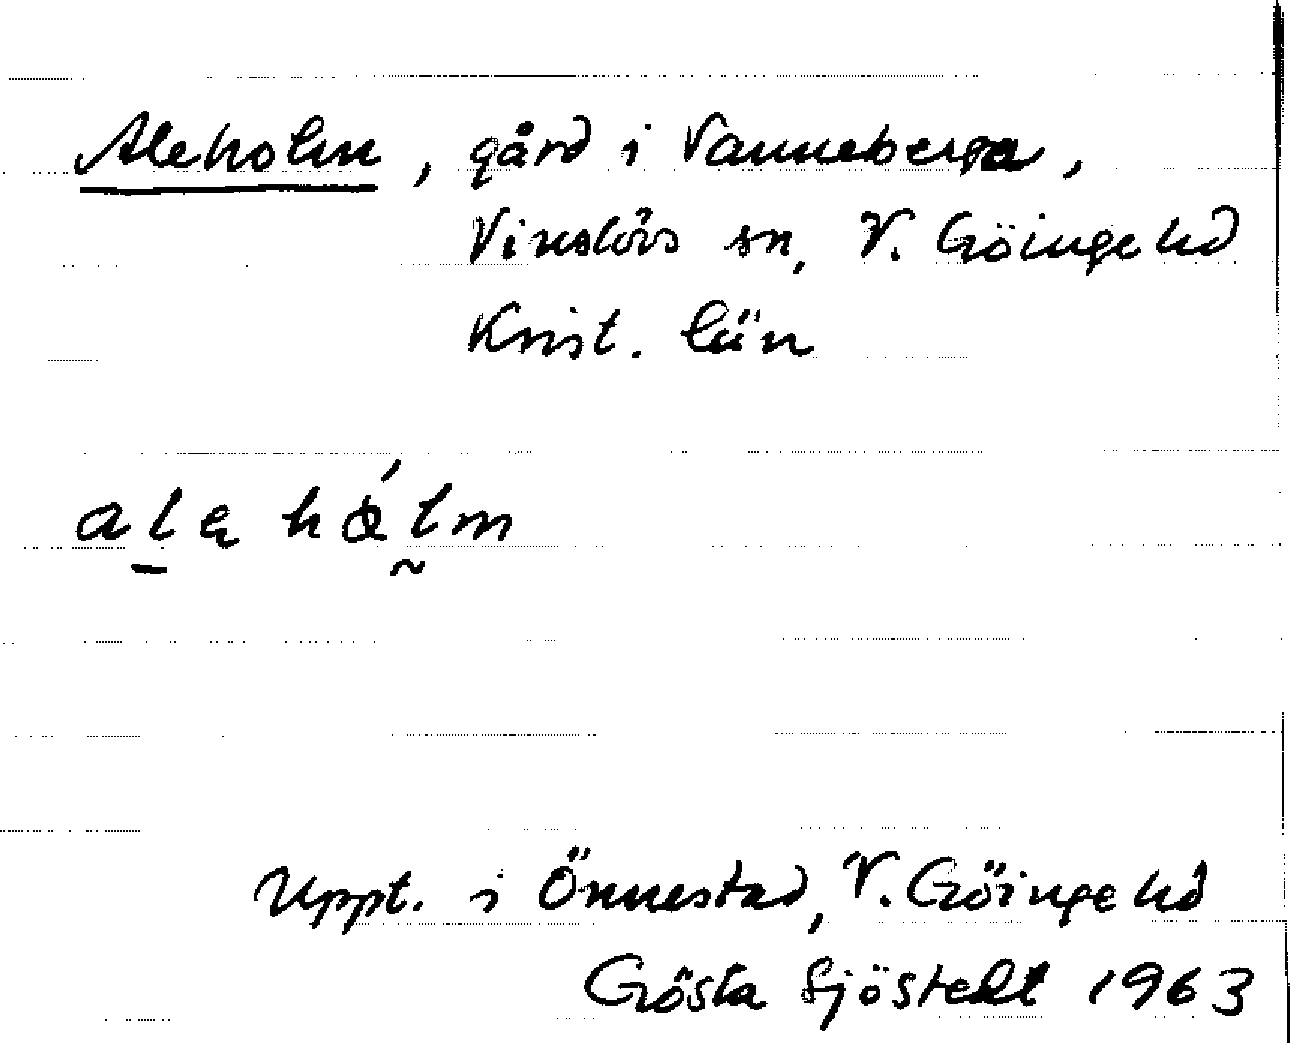 Aleholm, gård i Vanneberga,
Vinslövs sn, V. Göinge hd
Krist. län
alə hålm
Uppt. i Önnestad, V. Göinge hd
Gösta Sjöstedt 1963